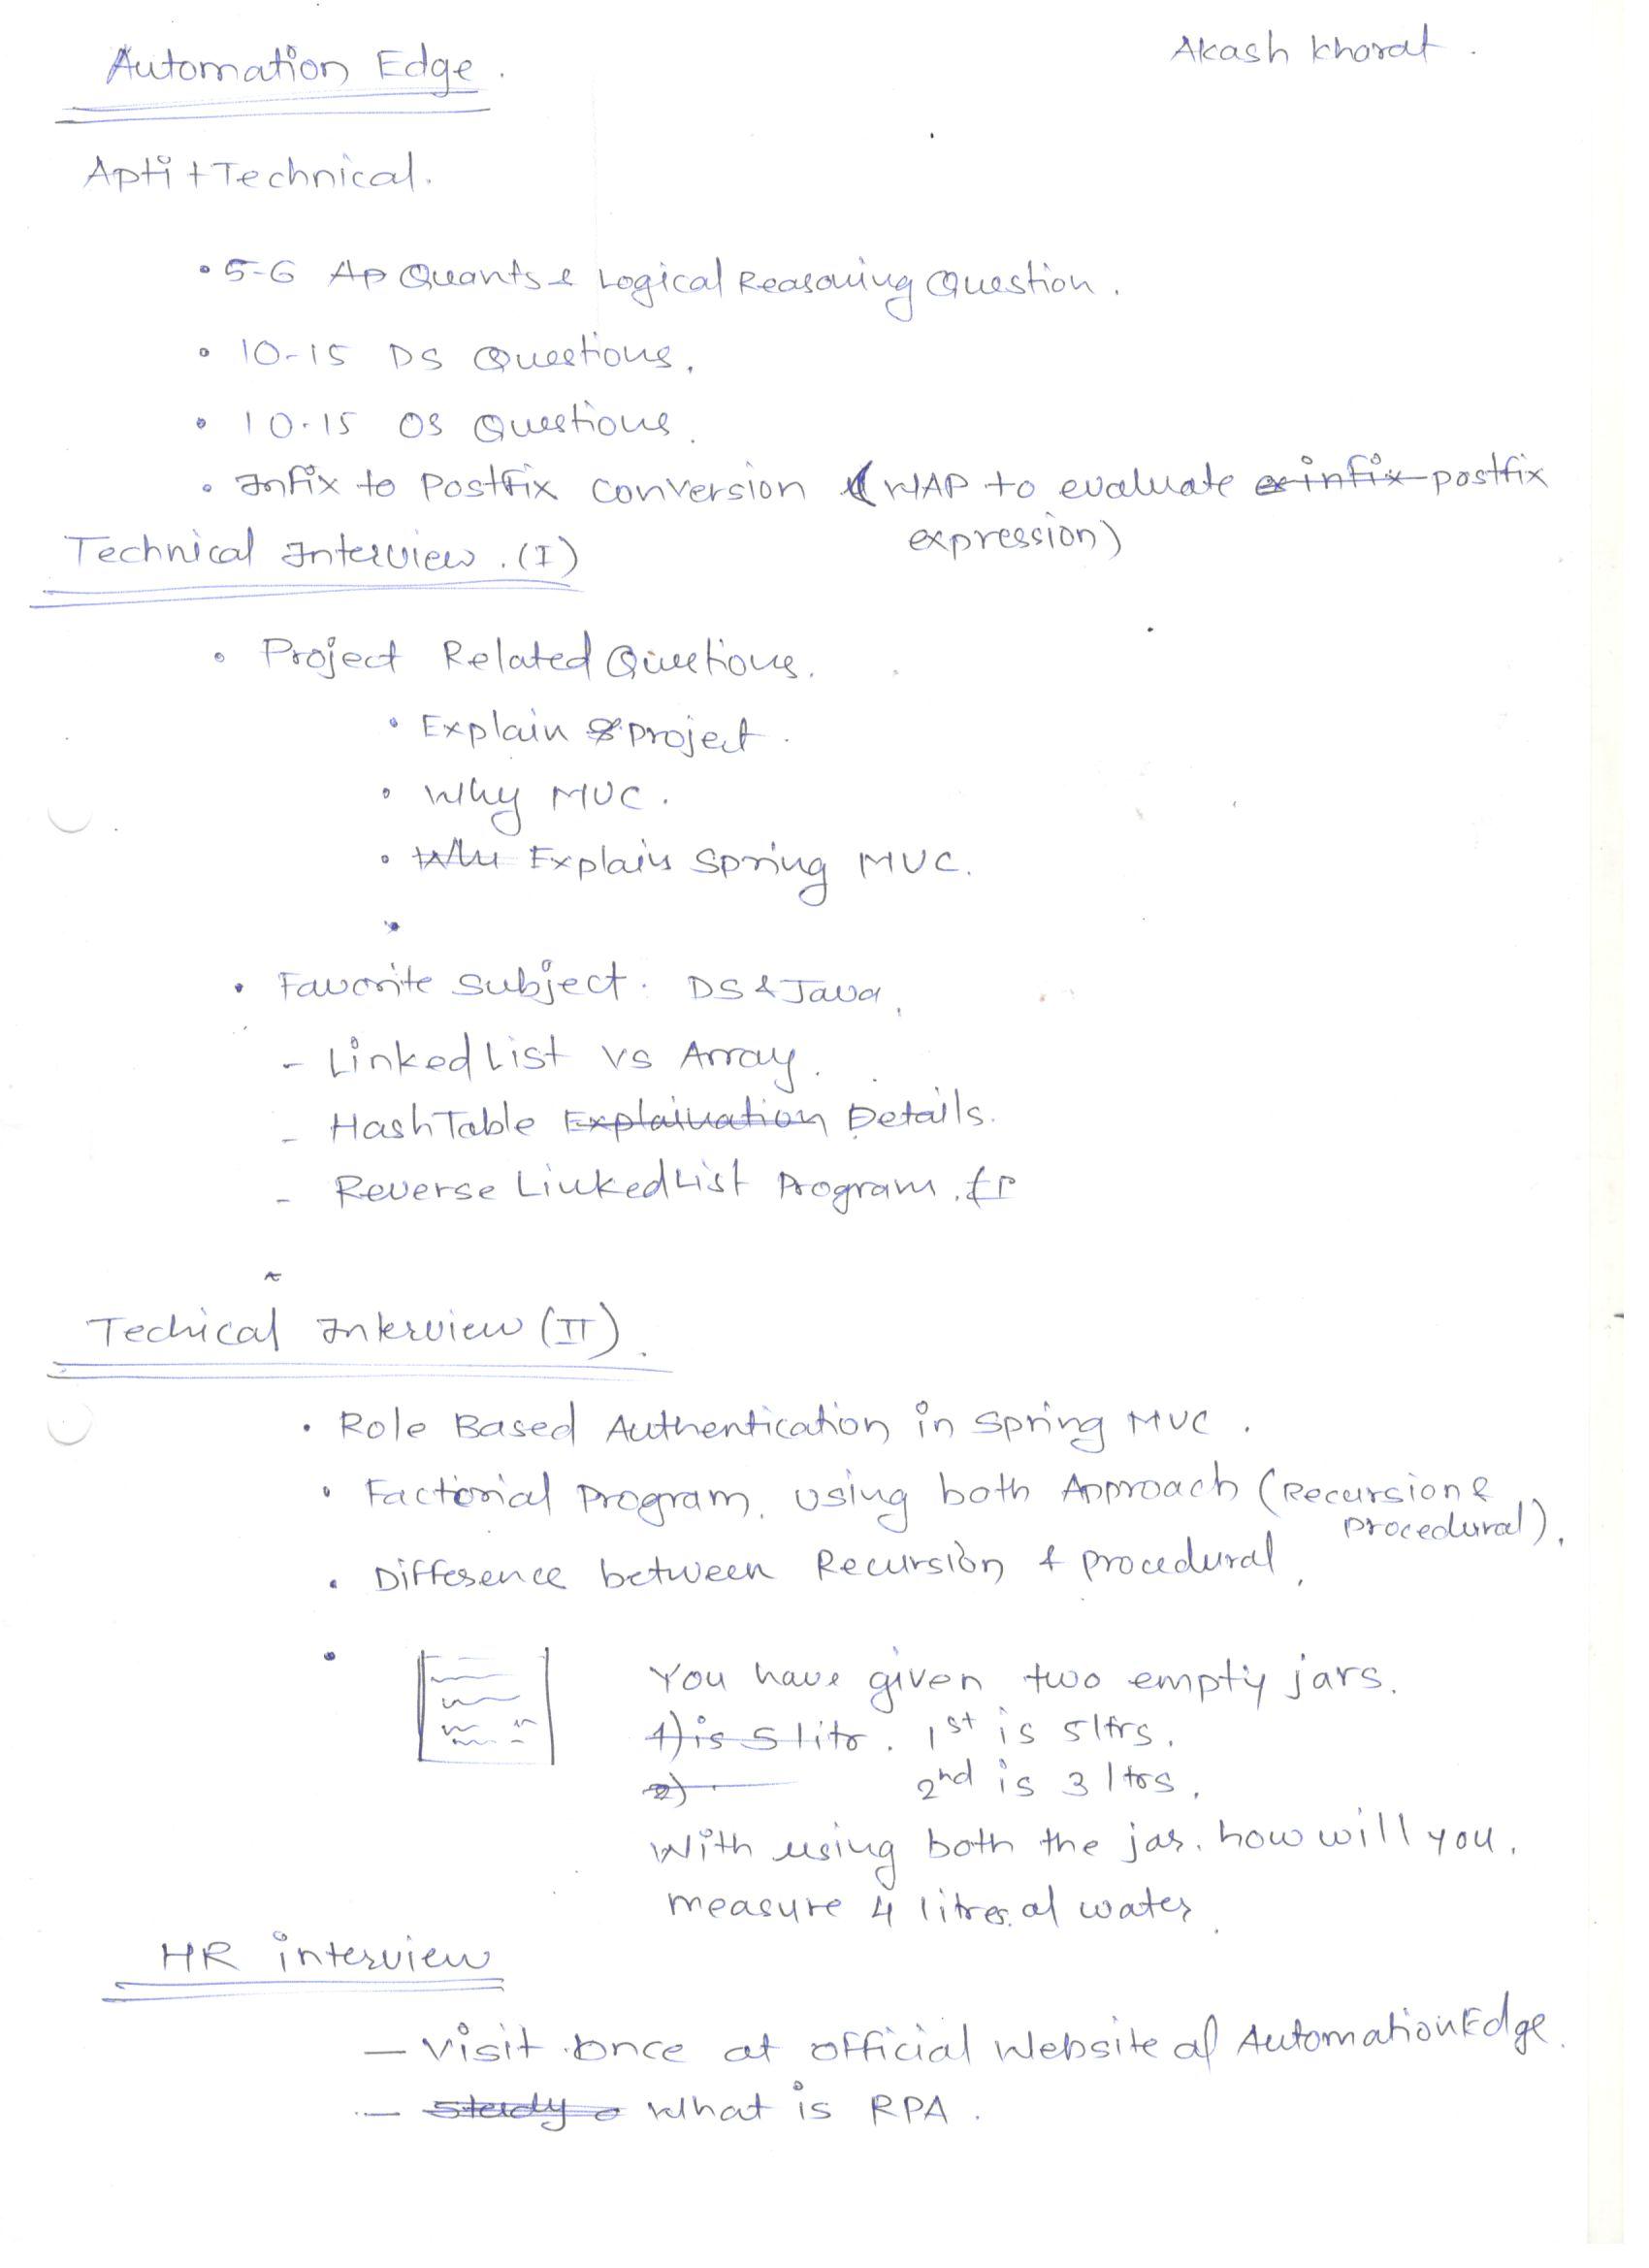 Automation Edge.
Akash Khorat.
Apti + Technical.
• 5-6 Ap Quants & Logical Reasoning Question.
• 10-15 DS Questions.
• 10-15 OS Questions.
• Infix to Postfix conversion (WAP to evaluate ex infix postfix
expression)
Technical Interview. (I)
• Project Related Questions.
• Explain project.
• Why MVC.
• Explain Spring MVC.
• Favorite Subject. DS & Java,
- Linked List vs Array.
- Hash Table Explaination Details.
- Reverse LinkedList Program.
Techical Interview (II).
• Role Based Authentication in Spring MVC.
• Factorial Program. using both Approach (Recursion &
procedural).
• Difference between Recursion & procedural,
• You have given two empty jars.
1) is 5 litr. 1st is 5 ltrs.
2) 2nd is 3 ltrs.
With using both the jar. how will you.
measure 4 litres of water.
HR interview
- Visit once at official Website of AutomationEdge.
- study What is RPA.